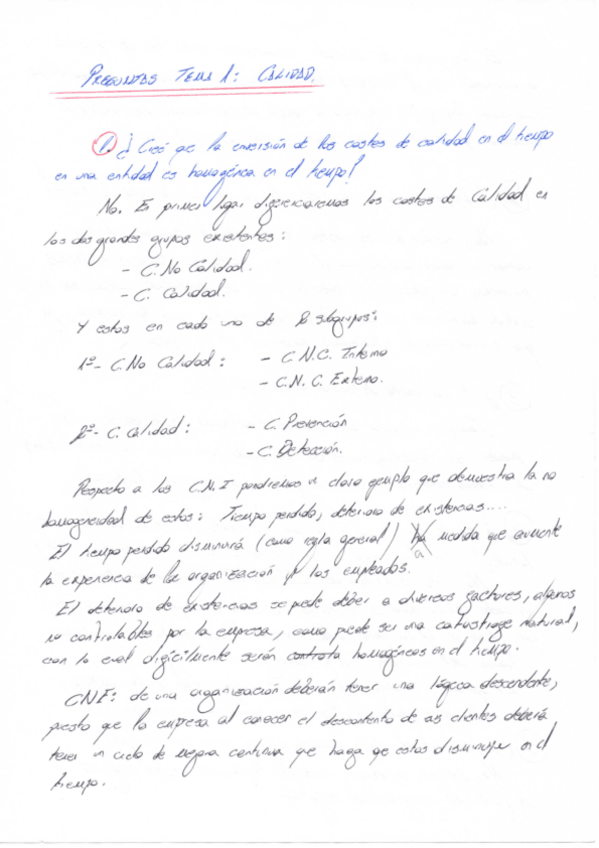 PREGUNTAS TEMA 1: CALIDAD.
1. ¿Creé que la inversión de los costes de calidad en el tiempo
en una entidad es homogénea en el tiempo?
No. En primer lugar diferenciaremos los costes de Calidad en
los dos grandes grupos existentes:
- C. No Calidad.
- C. Calidad.
Y estos en cada uno de subgrupos:
1º- C. No Calidad: - C.N.C. Interno
- C.N.C. Externo.
2º- C. Calidad: - C. Prevención
- C. Detección.
Respecto a los C.N.I pondremos un claro ejemplo que demuestra la no
homogeneidad de estos: Tiempo perdido, deterioro de existencias....
El tiempo perdido disminuirá (como regla general) a medida que aumente
la experiencia de la organización y los empleados.
El deterioro de existencias se puede deber a diversos factores, algunos
no controlables por la empresa, como puede ser una catastrofe natural,
con lo cual dificilmente serán homogéneos en el tiempo.
CNE: de una organización deberán tener una lógica descendente,
puesto que la empresa al conocer el descontento de sus clientes deberá
tener un ciclo de mejora continua que haga que estos disminuyan en el
tiempo.